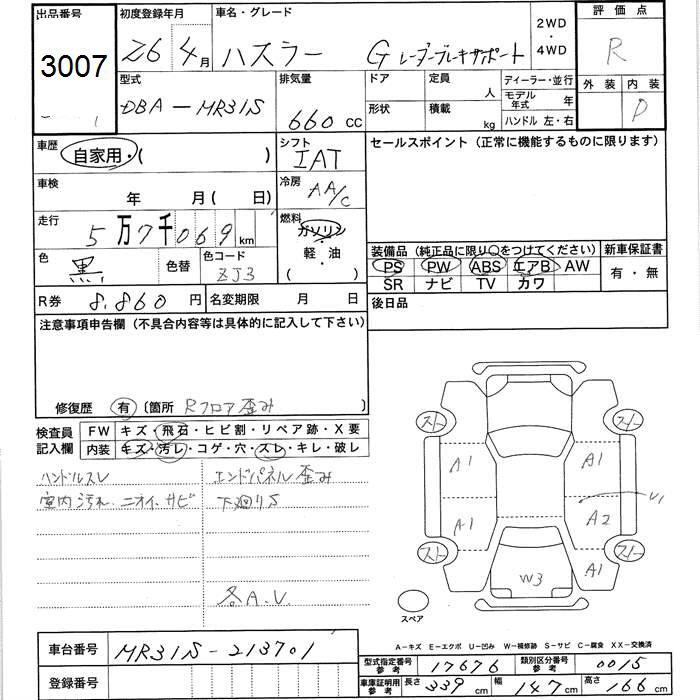 出品番号 初度登録年月 車名・グレード 2WD・4WD 評価点
3007 26 4月 ハスラー G レーダーブレーキサポート R
型式 排気量 ドア 定員 人 ディーラー・並行 外装 内装
DBA-MR31S 660 cc 形状 積載 kg モデル年式 年 D
ハンドル 左・右
車歴 自家用・( ) シフト IAT セールスポイント(正常に機能するものに限ります)
車検 年 月 ( 日) 冷房 AA/C
走行 5万7千069 km 燃料 ガソリン・軽・油 ( )
色 黒 色替 色コード ZJ3
装備品(純正品に限り〇をつけてください) 新車保証書
PS PW ABS エアB AW 有・無
SR ナビ TV カワ
R券 8,860 円 名変期限 月 日 後日品
注意事項申告欄(不具合内容等は具体的に記入して下さい)
修復歴 有 〔箇所 Rフロア歪み
検査員記入欄 FW キズ・飛石・ヒビ割・リペア跡・X要
内装 キズ・汚レ・コゲ・穴・スレ・キレ・破レ
ハンドルスレ エンドパネル歪み
室内汚れ、ニオイ、サビ 下廻りS
各A.V.
A1 A1
A1 A2
W3 A1
スペア
A-キズ E-エクボ U-凹み W-補修跡 S-サビ C-腐食 XX-交換済
車台番号 MR31S-213701
型式指定番号 参考 17676 類別区分番号 参考 0015
登録番号
車庫証明用 参考 長さ 339 cm 幅 147 cm 高さ 166 cm